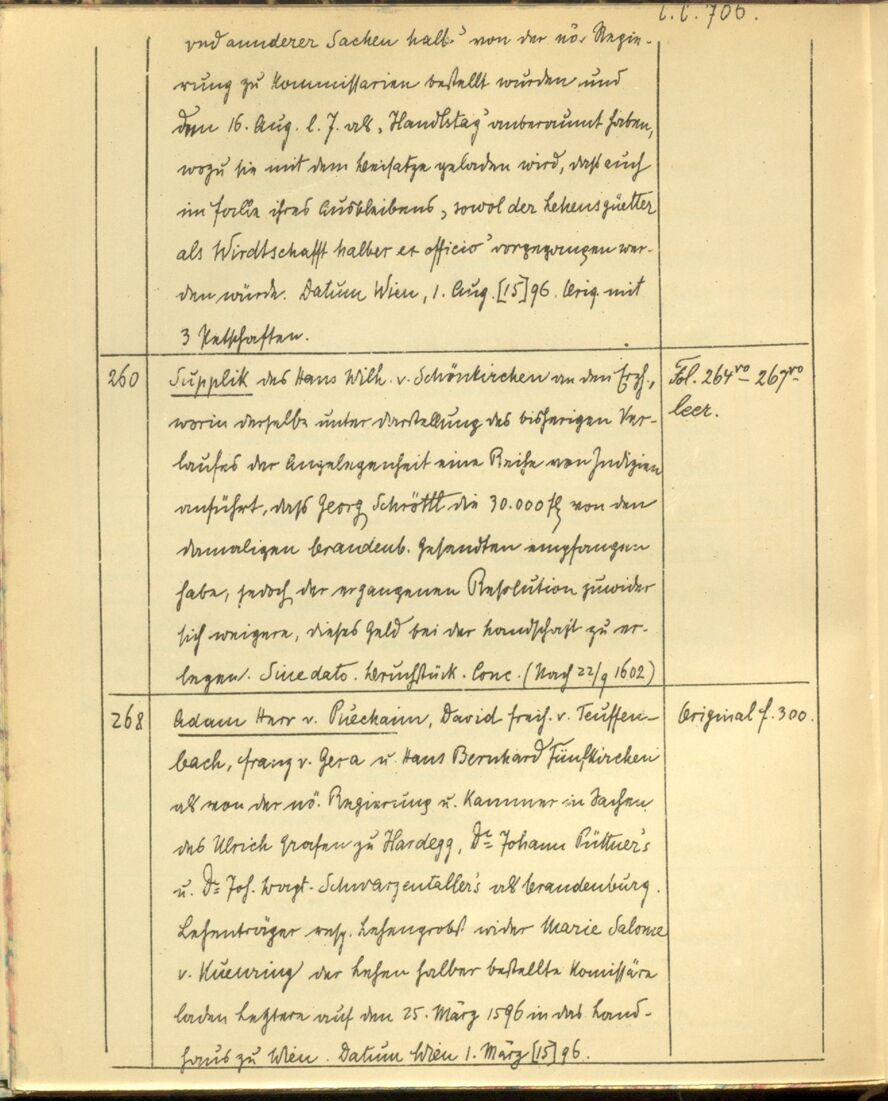 C. C. 706.
und annderer Sachen halb." von der nö. Regie-
rung zu Kommissarien bestellt wurden und
den 16. Aug. l. J. als „Handlstag" anberaumt haben,
wozu sie mit dem Beisatze geladen wird, daß auch
im Falle ihres Ausbleibens „sowol der Lehensgüetter
als Wirdtschafft halber ex officio" vorgegangen wer-
den würde. Datum Wien, 1. Aug. [15]96. Orig. mit
3 Petschaften.
260 Supplik des Hans Wilh. v. Schönkirchen an den Erzh., Fol. 264vo - 267vo
worin derselbe unter Darstellung des bisherigen Ver- leer.
laufes der Angelegenheit eine Reihe von Indizien
anführt, daß Georg Schröttl die 30.000 fl von den
damaligen brandenb. Gesandten empfangen
habe, jedoch der ergangenen Resolution zuwider
sich weigere, dieses Geld bei der Landschaft zu er-
legen. Sine dato. Bruchstück. Conc. (Nach 22/9 1602)
268 Adam Herr v. Puechaim, David Freih. v. Teuffen- Original f. 300.
bach, Franz v. Gera u. Hans Bernhard Fünfkirchen
als von der nö. Regierung u. Kammer in Sachen
des Ulrich Grafen zu Hardegg, Dr. Johann Püttner's
u. Dr. Joh. Bapt. Schwarzentaller's als brandenburg.
Lehenträger resp. Lehenprobst wider Marie Salome
v. Kuenring der Lehen halber bestellte Komissäre
laden Letztere auf den 25. März 1596 in das Land-
haus zu Wien. Datum Wien 1. März [15]96.